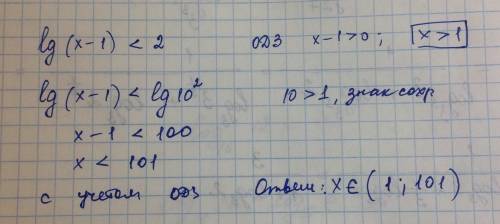 lg (x-1) < 2 ОДЗ x-1>0; x>1
lg (x-1) < lg 10² 10>1, знак сохр
x-1 < 100
x < 101
с учетом ОДЗ Ответ: x∈(1; 101)